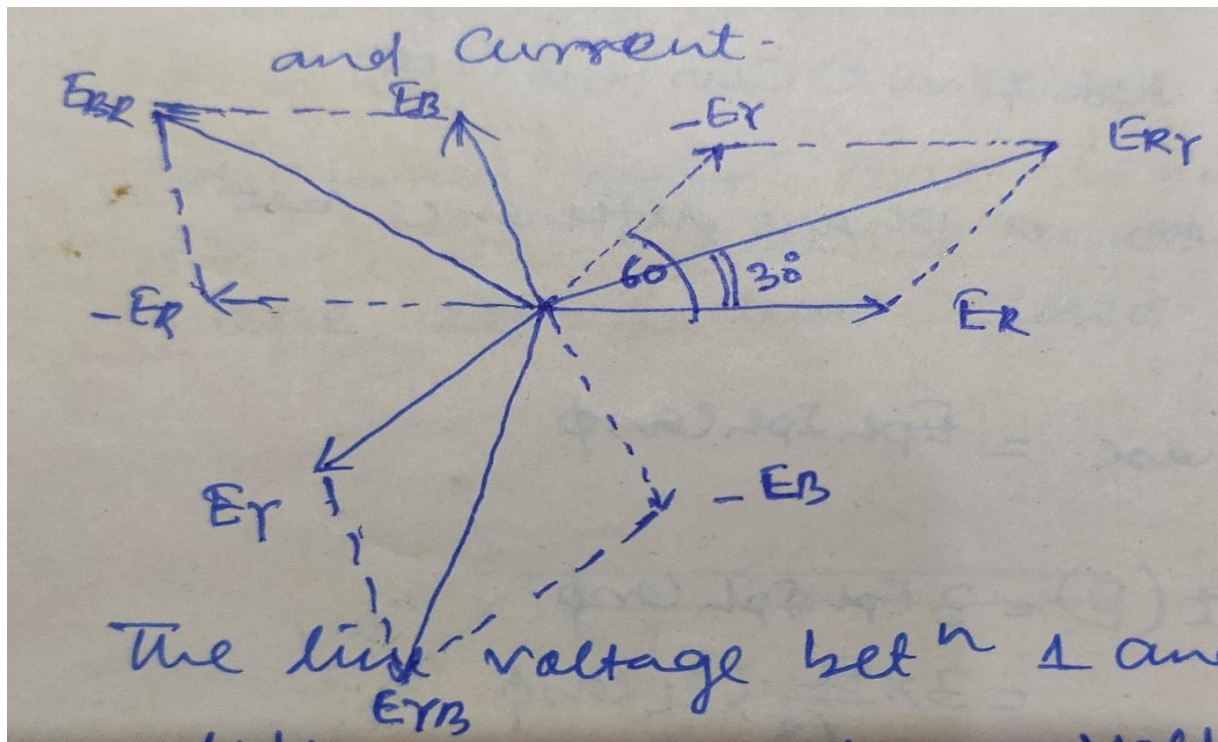 and Current.
EBR EB -EY ERY
60 30°
-ER ER
EY -EB
The line voltage betn 1 an
EYB